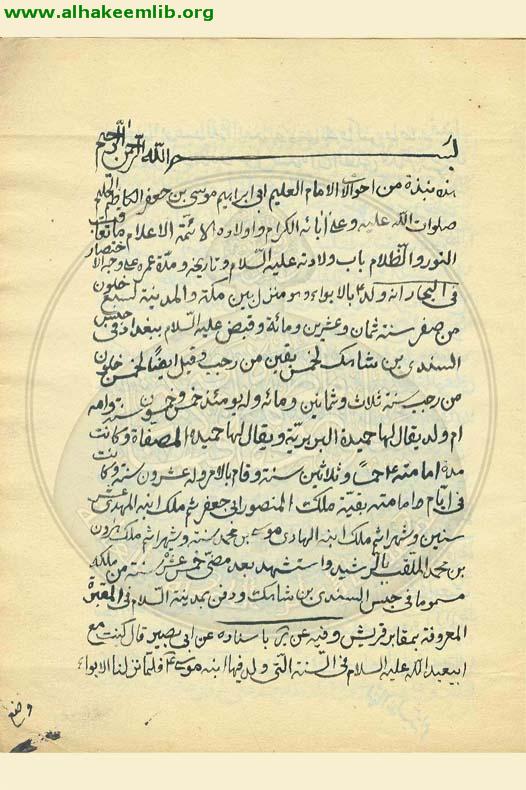 www.alhakeemlib.org
بسم الله الرحمن الرحيم
هذه نبذة من احوالات الامام العليم ابى ابراهيم موسى بن جعفر الكاظم الحليم
صلوات الله عليه وعلى أبائه الكرام واولاده الائمة الاعلام ما تعاقب
النور والظلام باب ولادته عليه السلام وتاريخه ومدّة عمره على وجه الاختصار
فى البحار انه ولد ع بالابواء وهو منزل بين مكة والمدينة لسبع خلون
من صفر سنة ثمان وعشرين ومائة وقبض عليه السلام ببغداد فى حبس
السندى بن شاهك لخمس بقين من رجب وقيل ايضًا لخمس خلون
من رجب سنة ثلاث وثمانين ومائة وله يومئذ خمس وخمسون سنة وامه
ام ولد يقال لها حميدة البربرية ويقال لها حميدة المصفاة وكانت
مدة امامته ع خمسًا وثلاثين سنة وقام بالامر وله عشرون سنة وكانت
فى ايّام امامته بقية ملك المنصور ابى جعفر ثم ملك ابنه المهدى عشر
سنين وشهرا ثم ملك ابنه الهادى موسى بن محمد سنة وشهرا ثم ملك هرون
بن محمد الملقب بالرشيد واستشهد بعد مضى خمس عشرة سنة من ملكه
مسموما فى حبس السندى بن شاهك ودفن بمدينة السلام فى المقبرة
المعروفة بمقابر قريش وفيه عن باسناده عن ابى بصير قال كنت مع
ابيعبد الله عليه السلام فى السنة التى ولد فيها ابنه موسى ع فلما نزلنا الابواء
وضع